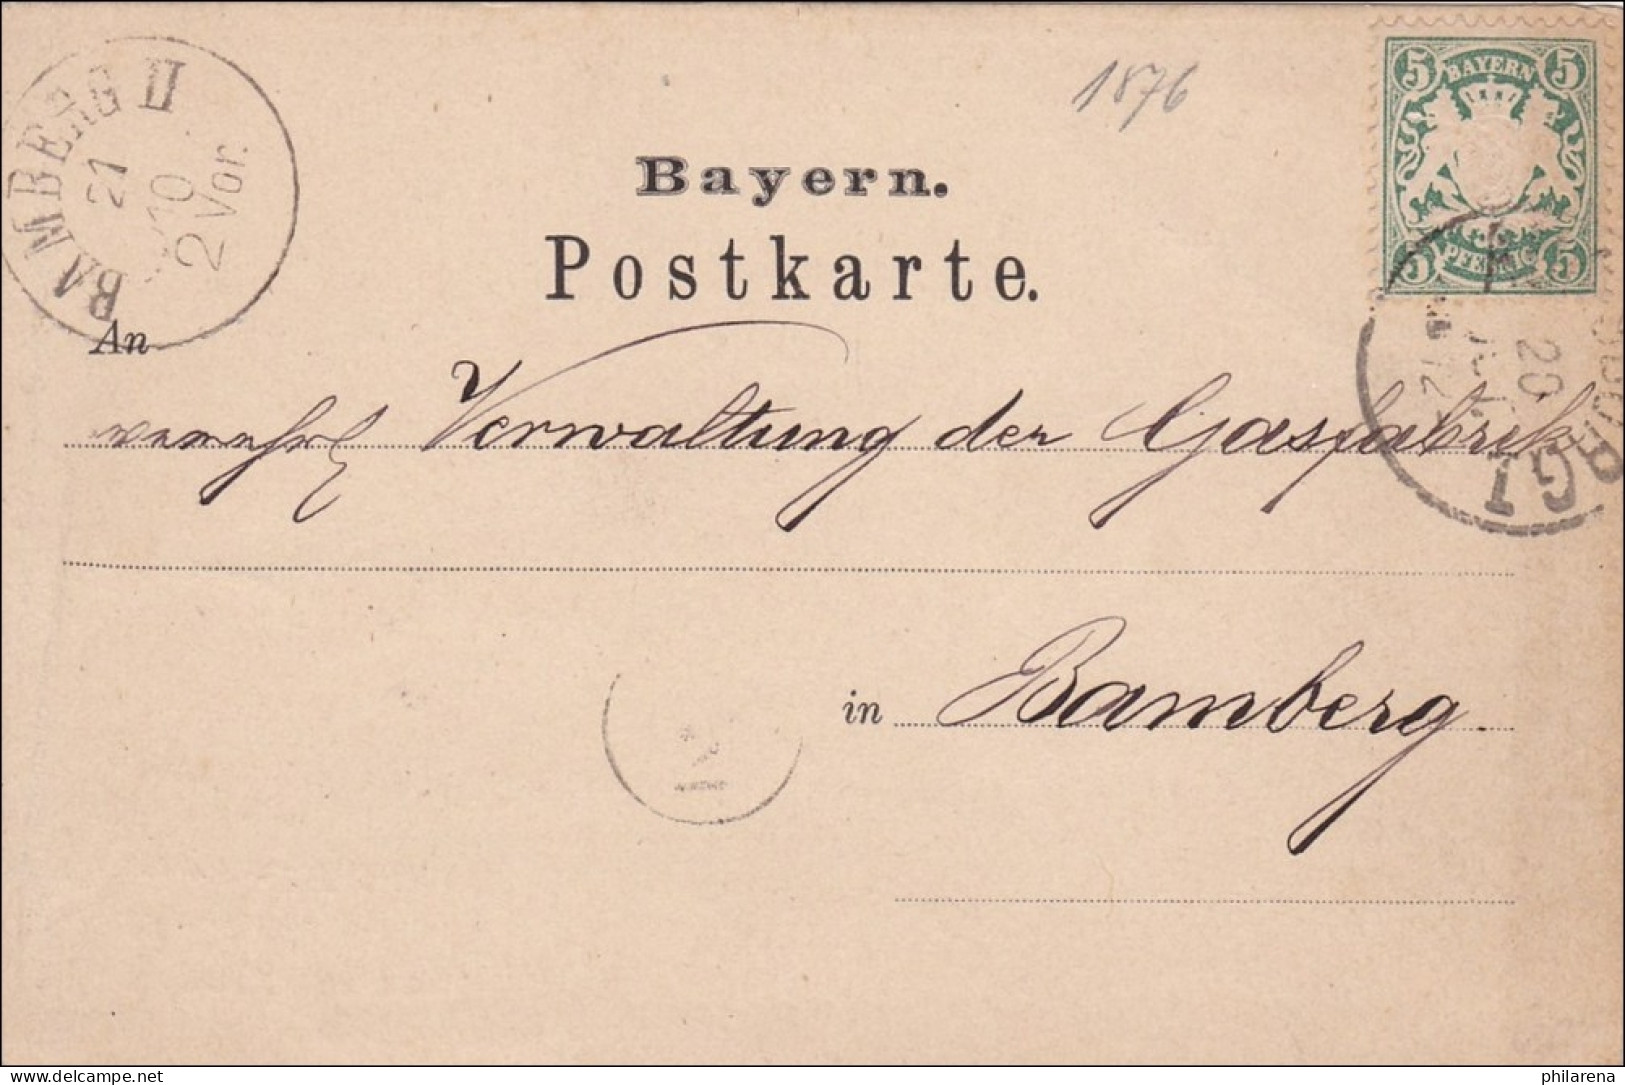 1876
5 BAYERN 5
5 PFENNIG 5
BAMBERG II
21
10
2 Vor.
Bayern.
Postkarte.
An
Verwaltung der Gasfabrik
20
in Bamberg.
philarena